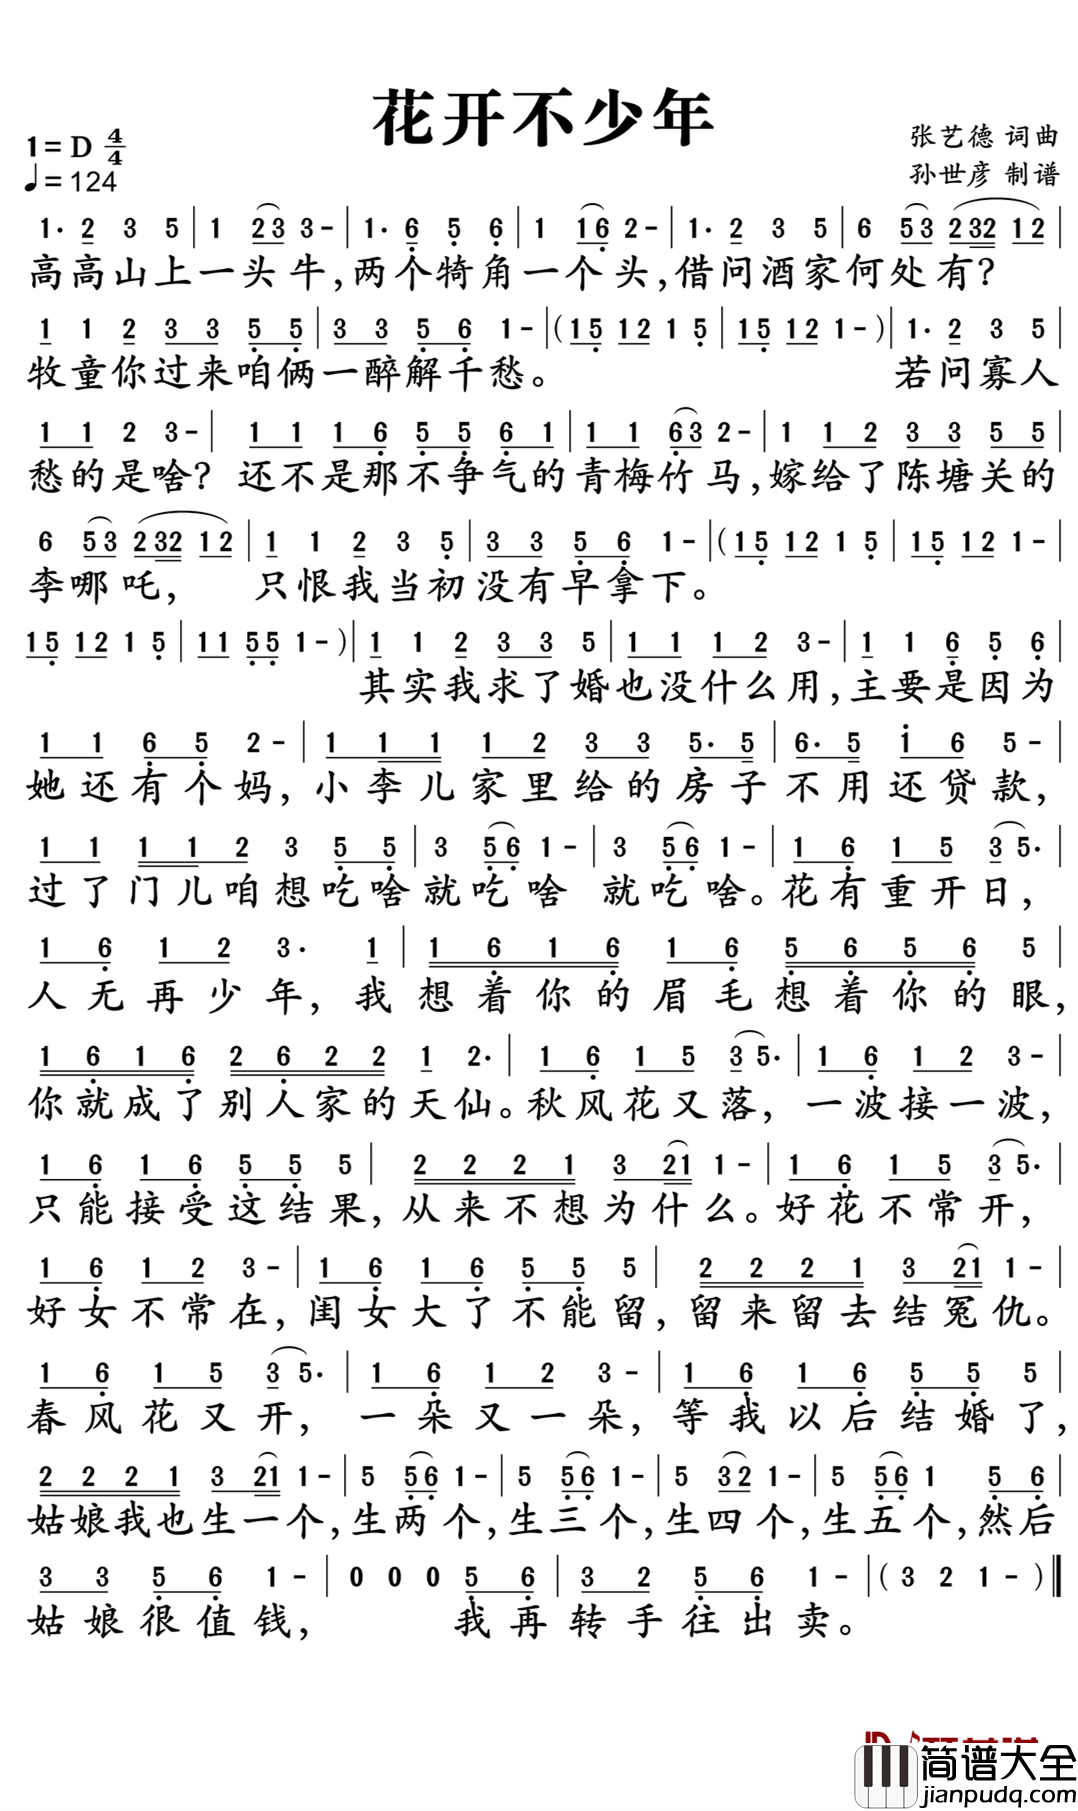 花开不少年
1=D 4/4
♩=124
张艺德 词曲
孙世彦 制谱
1· 2 3 5 | 1 23 3- | 1· 6 5 6 | 1 16 2- | 1· 2 3 5 | 6 53 232 12 |
高高山上一头牛,两个犄角一个头,借问酒家何处有?
1 1 2 3 3 5 5 | 3 3 5 6 1- | (15 12 1 5 | 15 12 1-) | 1· 2 3 5
牧童你过来咱俩一醉解千愁。 若问寡人
1 1 2 3- | 1 1 1 6 5 5 6 1 | 1 1 63 2- | 1 1 2 3 3 5 5 |
愁的是啥? 还不是那不争气的青梅竹马,嫁给了陈塘关的
6 53 232 12 | 1 1 2 3 5 | 3 3 5 6 1- | (15 12 1 5 | 15 12 1- |
李哪吒, 只恨我当初没有早拿下。
15 12 1 5 | 11 55 1-) | 1 1 2 3 3 5 | 1 1 1 2 3- | 1 1 6 5 6 |
其实我求了婚也没什么用,主要是因为
1 1 6 5 2- | 1 1 1 1 2 3 3 5· 5 | 6· 5 1 6 5- |
她还有个妈,小李儿家里给的房子不用还贷款,
1 1 1 1 2 3 5 5 | 3 56 1- | 3 56 1- | 1 6 1 5 3 5· |
过了门儿咱想吃啥就吃啥 就吃啥。花有重开日,
1 6 1 2 3· 1 | 1 6 1 6 1 6 5 6 5 6 5 |
人无再少年,我想着你的眉毛想着你的眼,
1 6 1 6 2 6 2 2 1 2· | 1 6 1 5 3 5· | 1 6 1 2 3- |
你就成了别人家的天仙。秋风花又落,一波接一波,
1 6 1 6 5 5 5 | 2 2 2 1 3 21 1- | 1 6 1 5 3 5· |
只能接受这结果,从来不想为什么。好花不常开,
1 6 1 2 3- | 1 6 1 6 5 5 5 | 2 2 2 1 3 21 1- |
好女不常在,闺女大了不能留,留来留去结冤仇。
1 6 1 5 3 5· | 1 6 1 2 3- | 1 6 1 6 5 5 5 |
春风花又开,一朵又一朵,等我以后结婚了,
2 2 2 1 3 21 1- | 5 56 1- | 5 56 1- | 5 32 1- | 5 56 1 5 6 |
姑娘我也生一个,生两个,生三个,生四个,生五个,然后
3 3 5 6 1- | 0 0 0 5 6 | 3 2 5 6 1- | (3 2 1-) ‖
姑娘很值钱, 我再转手往出卖。
简谱大全
jianpudq.com